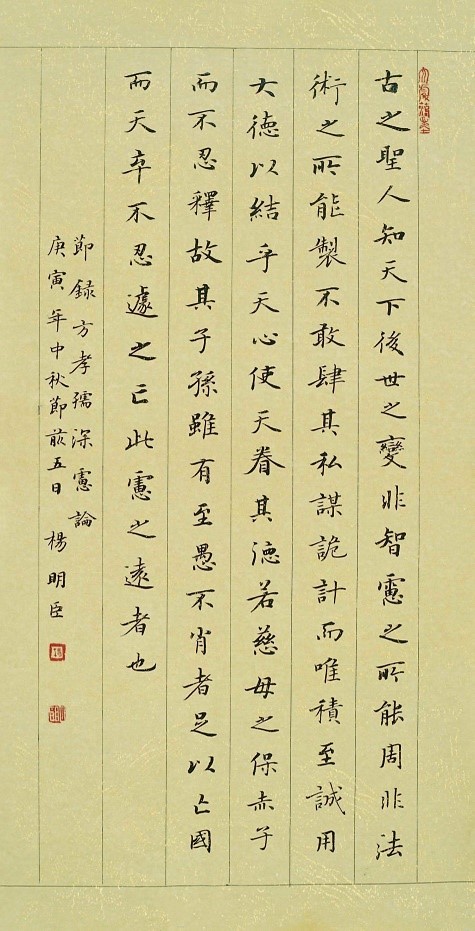 古之聖人知天下後世之變非智慮之所能周非法
術之所能製不敢肆其私謀詭計而唯積至誠用
大德以結乎天心使天眷其德若慈母之保赤子
而不忍釋故其子孫雖有至愚不肖者足以亡國
而天卒不忍遽之亡此慮之遠者也
節録方孝孺深慮論
庚寅年中秋節前五日 楊明臣